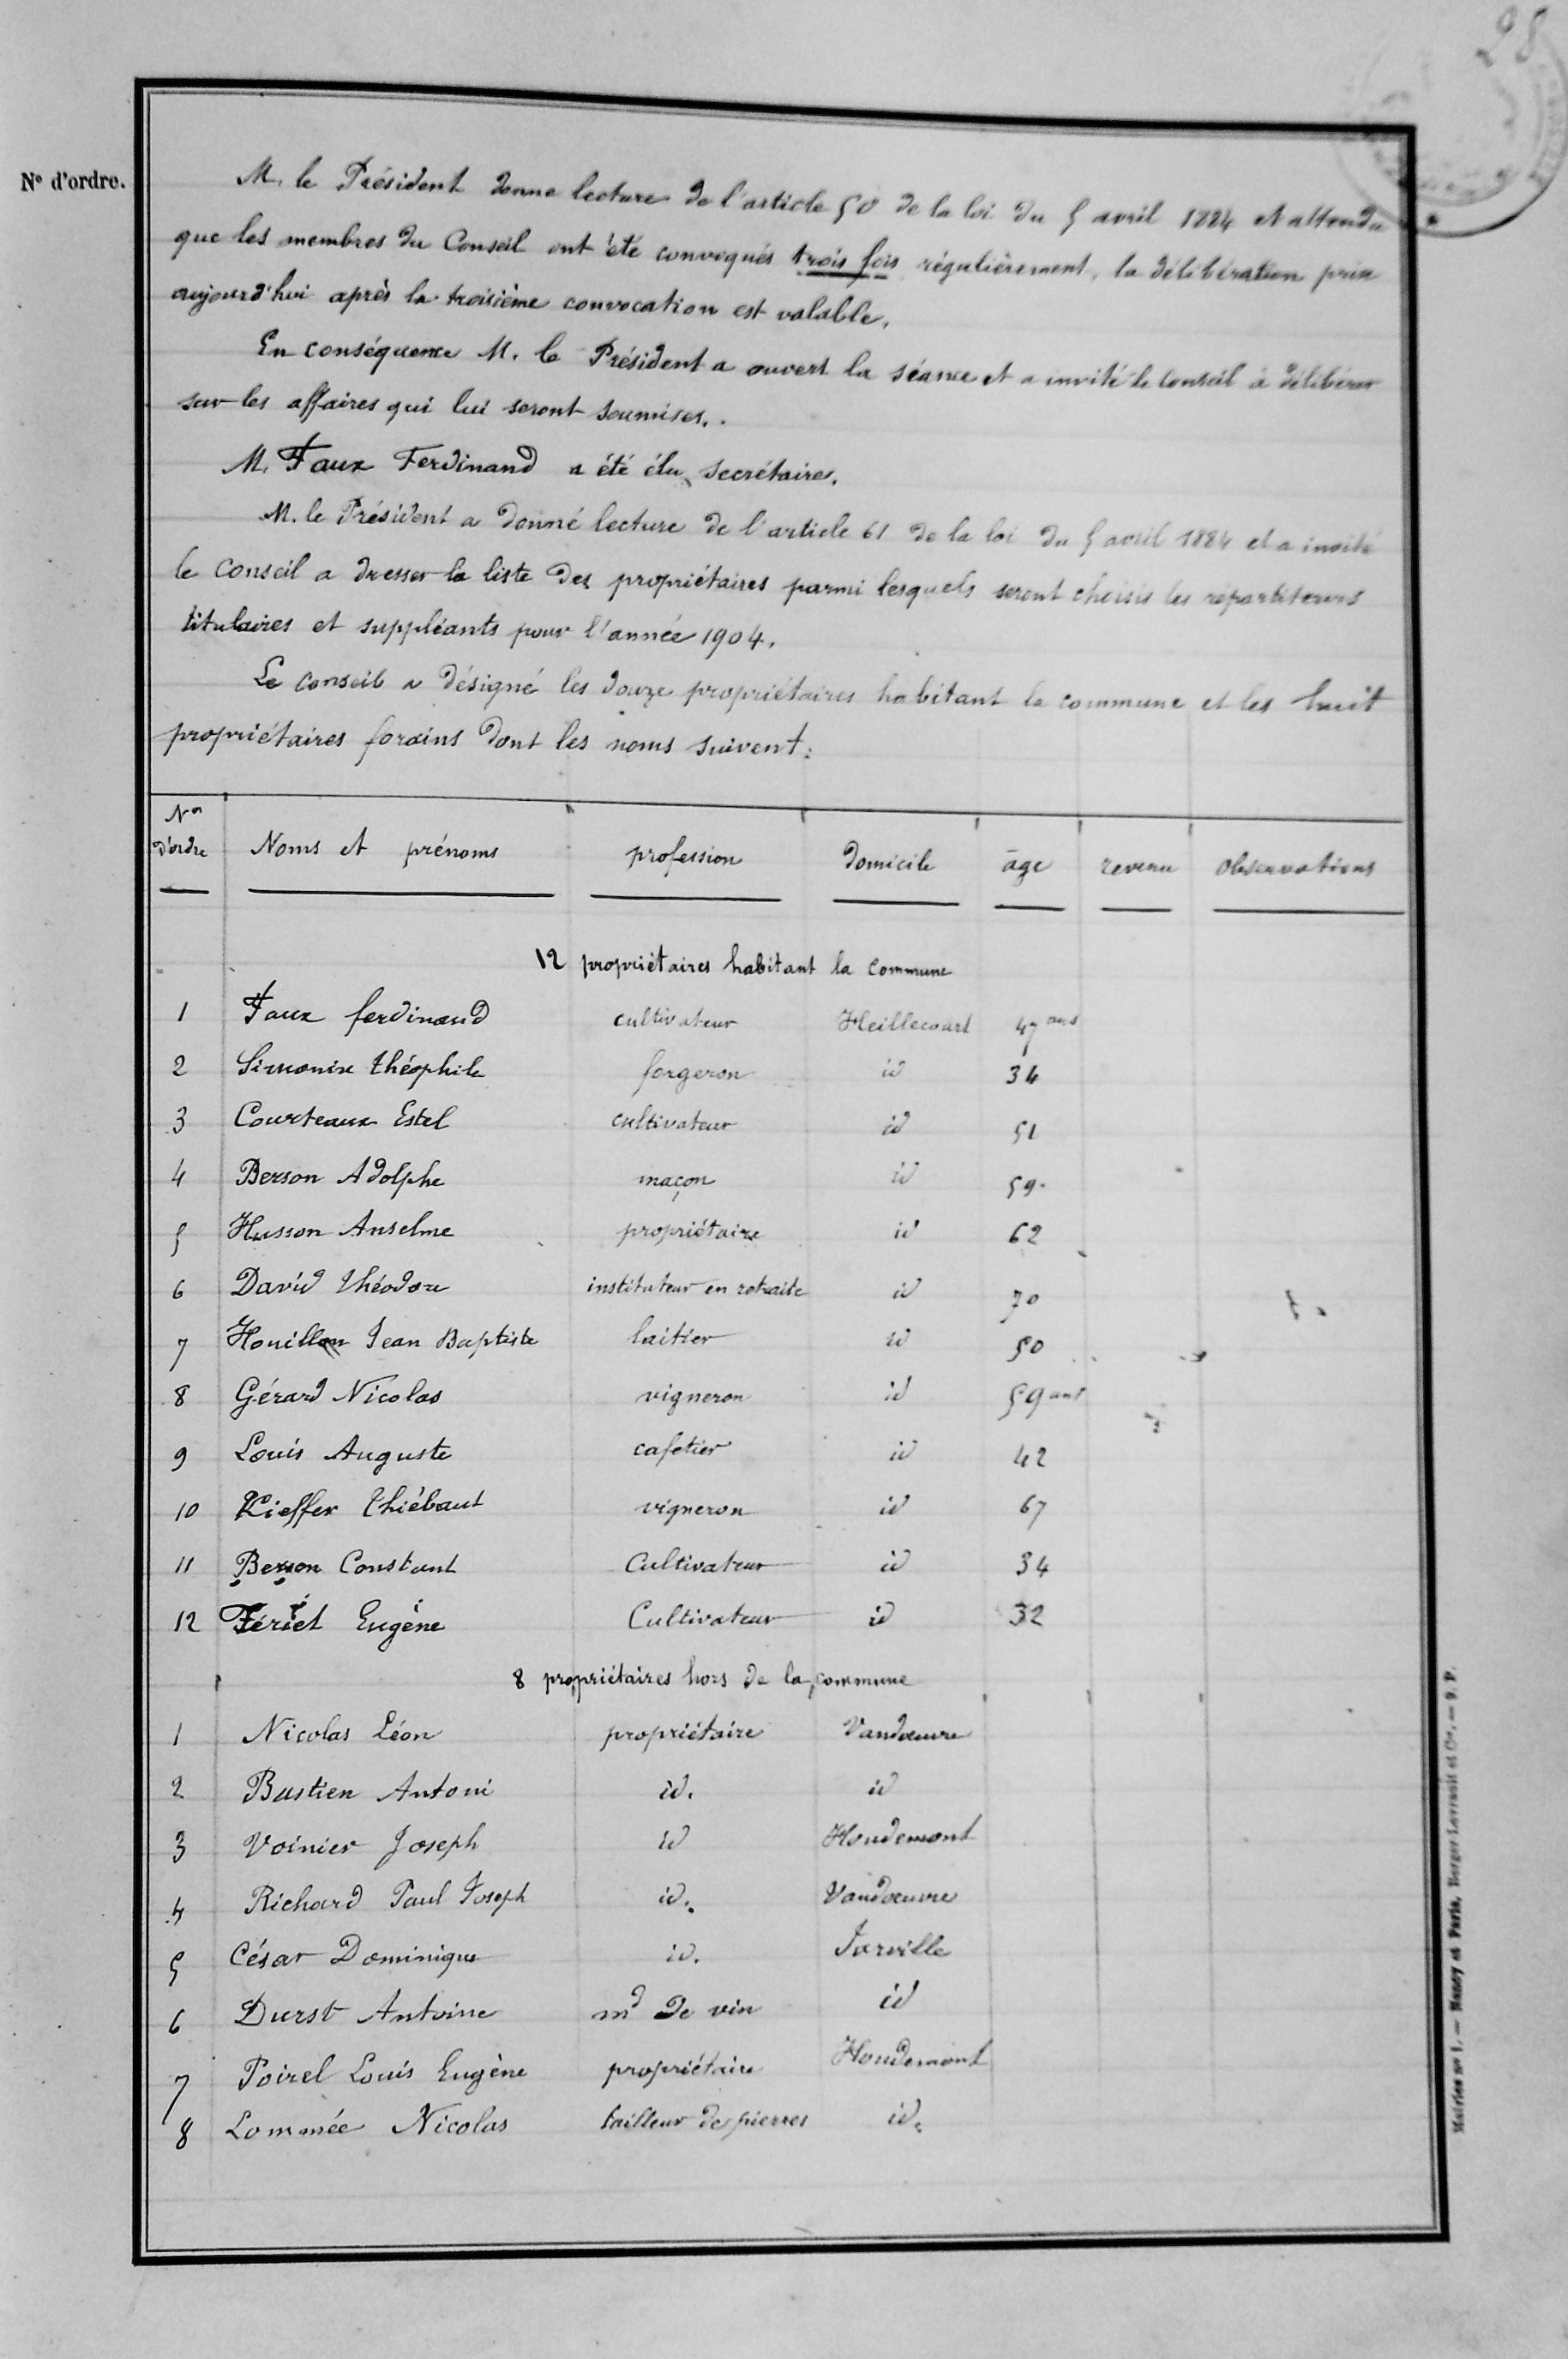 28
N° d'ordre.
M. le Président donne lecture de l'article 50 de la loi du 5 avril 1884 et attendu
que les membres du Conseil ont été convoqués trois fois régulièrement, la délibération prise
aujourd'hui après la troisième convocation est valable.
En conséquence M. le Président a ouvert la séance et a invité le Conseil à délibérer
sur les affaires qui lui seront soumises.
M. Faux Ferdinand a été élu secrétaire.
M. le Président a donné lecture de l'article 61 de la loi du 5 avril 1884 et a invité
le Conseil a dresser la liste des propriétaires parmi lesquels seront choisis les répartiteurs
titulaires et suppléants pour l'année 1904.
Le conseil a désigné les douze propriétaires habitant la commune et les huit
propriétaires forains dont les noms suivent:
Nos d'ordre Noms et prénoms profession domicile âge revenu observations
12 propriétaires habitant la commune
1 Faux ferdinand cultivateur Heillecourt 47 ans
2 Simonin théophile forgeron id 34
3 Courteaux Estel cultivateur id 51
4 Berson Adolphe maçon id 59
5 Husson Anselme propriétaire id 62
6 David théodore instituteur en retraite id 70
7 Houillon Jean Baptiste laitier id 50
8 Gérard Nicolas vigneron id 59 ans
9 Louis Auguste cafetier id 42
10 Kieffer Thiébaut vigneron id 67
11 Berson Constant Cultivateur id 34
12 Fériet Eugène Cultivateur id 32
8 propriétaires hors de la commune
1 Nicolas Léon propriétaire Vandœuvre
2 Bastien Antoni id. id
3 Voinier Joseph id Houdemont
4 Richard Paul Joseph id. Vandœuvre
5 César Dominique id. Jarville
6 Durst Antoine md de vin id
7 Poirel Louis Eugène propriétaire Houdemont
8 Lommée Nicolas tailleur de pierres id.
Mairies n° 1. — Nancy et Paris, Berger-Levrault et Cie. — 9. P.